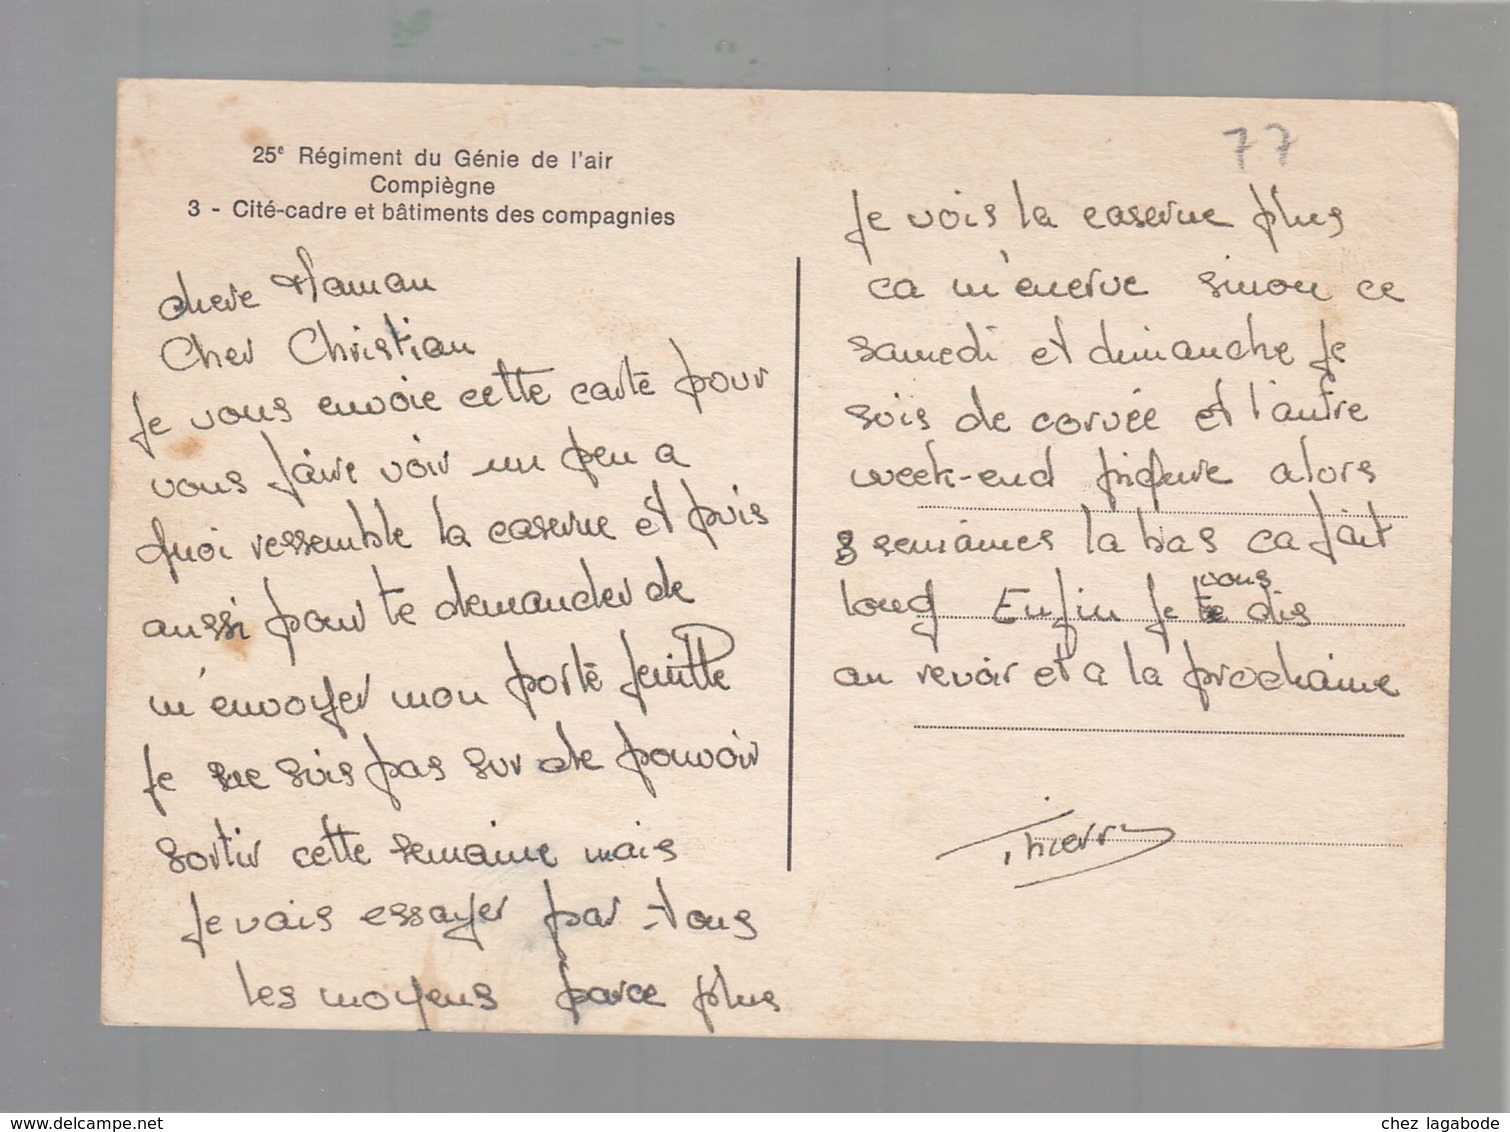 25e Régiment du Génie de l'air
Compiègne
3 - Cité-cadre et bâtiments des compagnies
chere Maman
Cher Christian
Je vous envoie cette carte pour
vous faire voir un peu a
quoi ressemble la caserne et puis
aussi pour te demander de
m'envoyer mon porte feuille
Je ne suis pas sur de pouvoir
sortir cette semaine mais
Je vais essayer par tous
les moyens parce plus
77
Je vois la caserne plus
ca m'enerve sinon ce
samedi et dimanche Je
suis de corvée et l'autre
week-end piqure alors
3 semaines la bas ca fait
long Enfin Je vous dis
au revoir et a la prochaine
Thierry
www.delcampe.net
chez lagabode